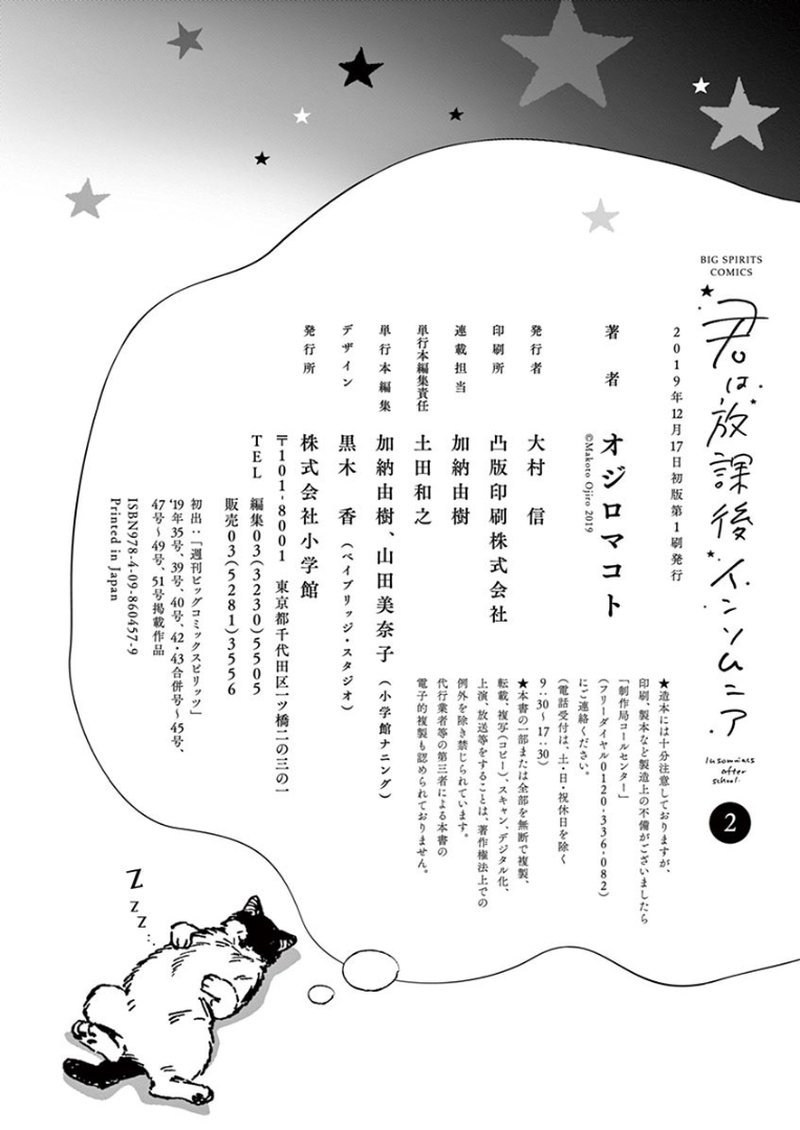 BIG SPIRITS
COMICS
君は放課後インソムニア
Insomniacs
after
school
2
2019年12月17日初版第1刷発行
著者
オジロマコト
©Makoto Ojiro 2019
発行者
大村 信
印刷所
凸版印刷株式会社
連載担当
加納由樹
単行本編集責任
土田和之
単行本編集
加納由樹、山田美奈子(小学館ナニング)
デザイン
黒木 香(ベイブリッジ・スタジオ)
発行所
株式会社小学館
〒101-8001 東京都千代田区一ツ橋二の三の一
TEL 編集03(3230)5505
販売03(5281)3556
初出:「週刊ビッグコミックスピリッツ」
'19年35号、39号、40号、42・43合併号〜45号、
47号〜49号、51号掲載作品
ISBN978-4-09-860457-9
Printed in Japan
★造本には十分注意しておりますが、
印刷、製本など製造上の不備がございましたら
「制作局コールセンター」
(フリーダイヤル0120-336-082)
にご連絡ください。
(電話受付は、土・日・祝休日を除く
9:30〜17:30)
★本書の一部または全部を無断で複製、
転載、複写(コピー)、スキャン、デジタル化、
上演、放送等をすることは、著作権法上での
例外を除き禁じられています。
代行業者等の第三者による本書の
電子的複製も認められておりません。
Z
Z
Z...